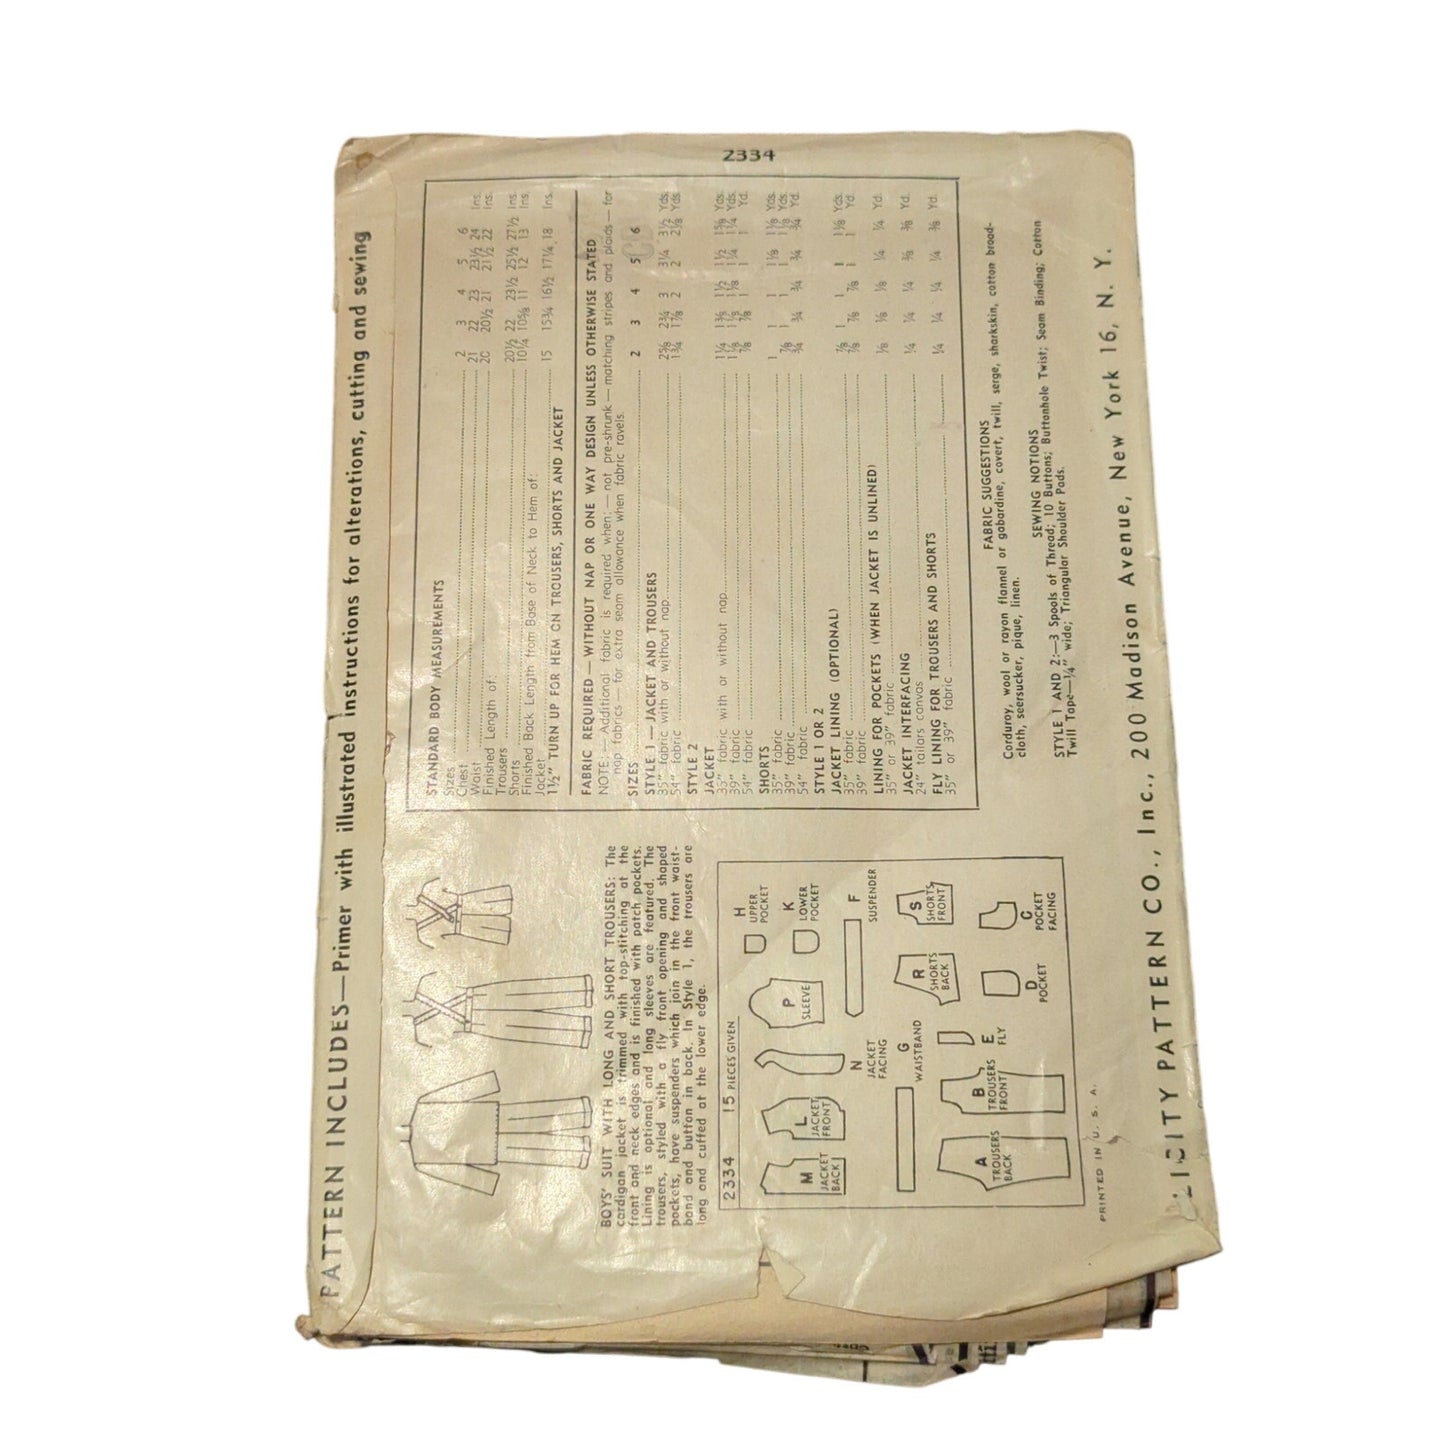 2334
PATTERN INCLUDES—Primer with illustrated instructions for alterations, cutting and sewing
BOYS' SUIT WITH LONG AND SHORT TROUSERS: The
cardigan jacket is trimmed with top-stitching at the
front and neck edges and is finished with patch pockets.
Lining is optional and long sleeves are featured. The
trousers, styled with a fly front opening and shaped
pockets, have suspenders which join in the front waist-
band and button in back. In Style 1, the trousers are
long and cuffed at the lower edge.
2334 15 PIECES GIVEN
M
JACKET
BACK
L
JACKET
FRONT
N
JACKET
FACING
P
SLEEVE
H
UPPER
POCKET
K
LOWER
POCKET
F
SUSPENDER
G
WAISTBAND
R
SHORTS
BACK
S
SHORTS
FRONT
A
TROUSERS
BACK
B
TROUSERS
FRONT
E
FLY
D
POCKET
C
POCKET
FACING
PRINTED IN U. S. A.
STANDARD BODY MEASUREMENTS
Sizes 2 3 4 5 6
Chest 21 22 23 23½ 24 Ins.
Waist 20 20½ 21 21½ 22 Ins.
Finished Length of:
Trousers 20½ 22 23½ 25½ 27½ Ins.
Shorts 10¼ 10⅝ 11 12 13 Ins.
Finished Back Length from Base of Neck to Hem of:
Jacket 15 15¾ 16½ 17¼ 18 Ins.
1½" TURN UP FOR HEM ON TROUSERS, SHORTS AND JACKET
FABRIC REQUIRED—WITHOUT NAP OR ONE WAY DESIGN UNLESS OTHERWISE STATED
NOTE:—Additional fabric is required when:—not pre-shrunk—matching stripes and plaids—for
nap fabrics—for extra seam allowance when fabric ravels.
SIZES 2 3 4 5 6
STYLE 1—JACKET AND TROUSERS
35" fabric with or without nap 2⅝ 2¾ 3 3¼ 3½ Yds.
54" fabric 1¾ 1⅞ 2 2 2⅛ Yds.
STYLE 2
JACKET
35" fabric with or without nap 1¼ 1⅜ 1½ 1½ 1⅝ Yds.
39" fabric 1⅛ 1⅛ 1⅛ 1¼ 1¼ Yds.
54" fabric ⅞ ⅞ 1 1 1 Yd.
SHORTS
35" fabric 1 1 1 1⅛ 1⅛ Yds.
39" fabric ⅞ 1 1 1⅛ Yds.
54" fabric ¾ ¾ ¾ ¾ ¾ Yd.
STYLE 1 OR 2
JACKET LINING (OPTIONAL)
35" fabric ⅞ 1 1 1 1⅛ Yds.
39" fabric ⅞ ⅞ ⅞ 1 1 Yd.
LINING FOR POCKETS (WHEN JACKET IS UNLINED)
35" or 39" fabric ⅛ ⅛ ⅛ ¼ ¼ Yd.
JACKET INTERFACING
24" tailors canvas ¼ ¼ ¼ ⅜ ⅜ Yd.
FLY LINING FOR TROUSERS AND SHORTS
35" or 39" fabric ¼ ¼ ¼ ¼ ⅜ Yd.
FABRIC SUGGESTIONS
Corduroy, wool or rayon flannel or gabardine, covert, twill, serge, sharkskin, cotton broad-
cloth, seersucker, pique, linen.
SEWING NOTIONS
STYLE 1 AND 2:—3 Spools of Thread; 10 Buttons; Buttonhole Twist; Seam Binding; Cotton
Twill Tape—¼" wide; Triangular Shoulder Pads.
LICITY PATTERN CO., Inc., 200 Madison Avenue, New York 16, N. Y.